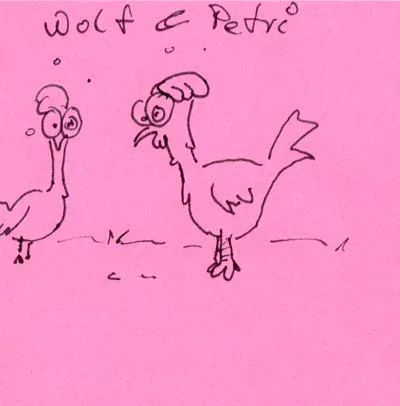 Wolf & Petri